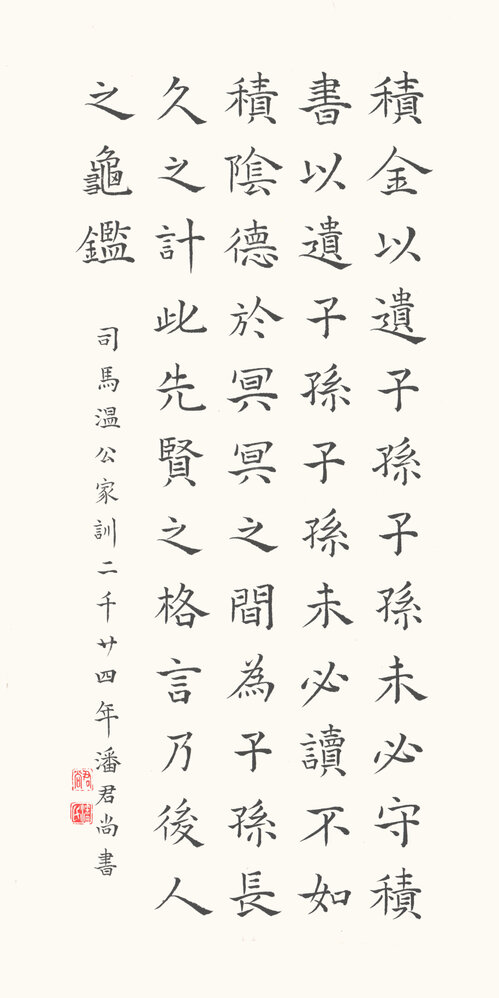 積金以遺子孫子孫未必守積
書以遺子孫子孫未必讀不如
積陰德於冥冥之間為子孫長
久之計此先賢之格言乃後人
之龜鑑
司馬溫公家訓二千廿四年潘君尚書